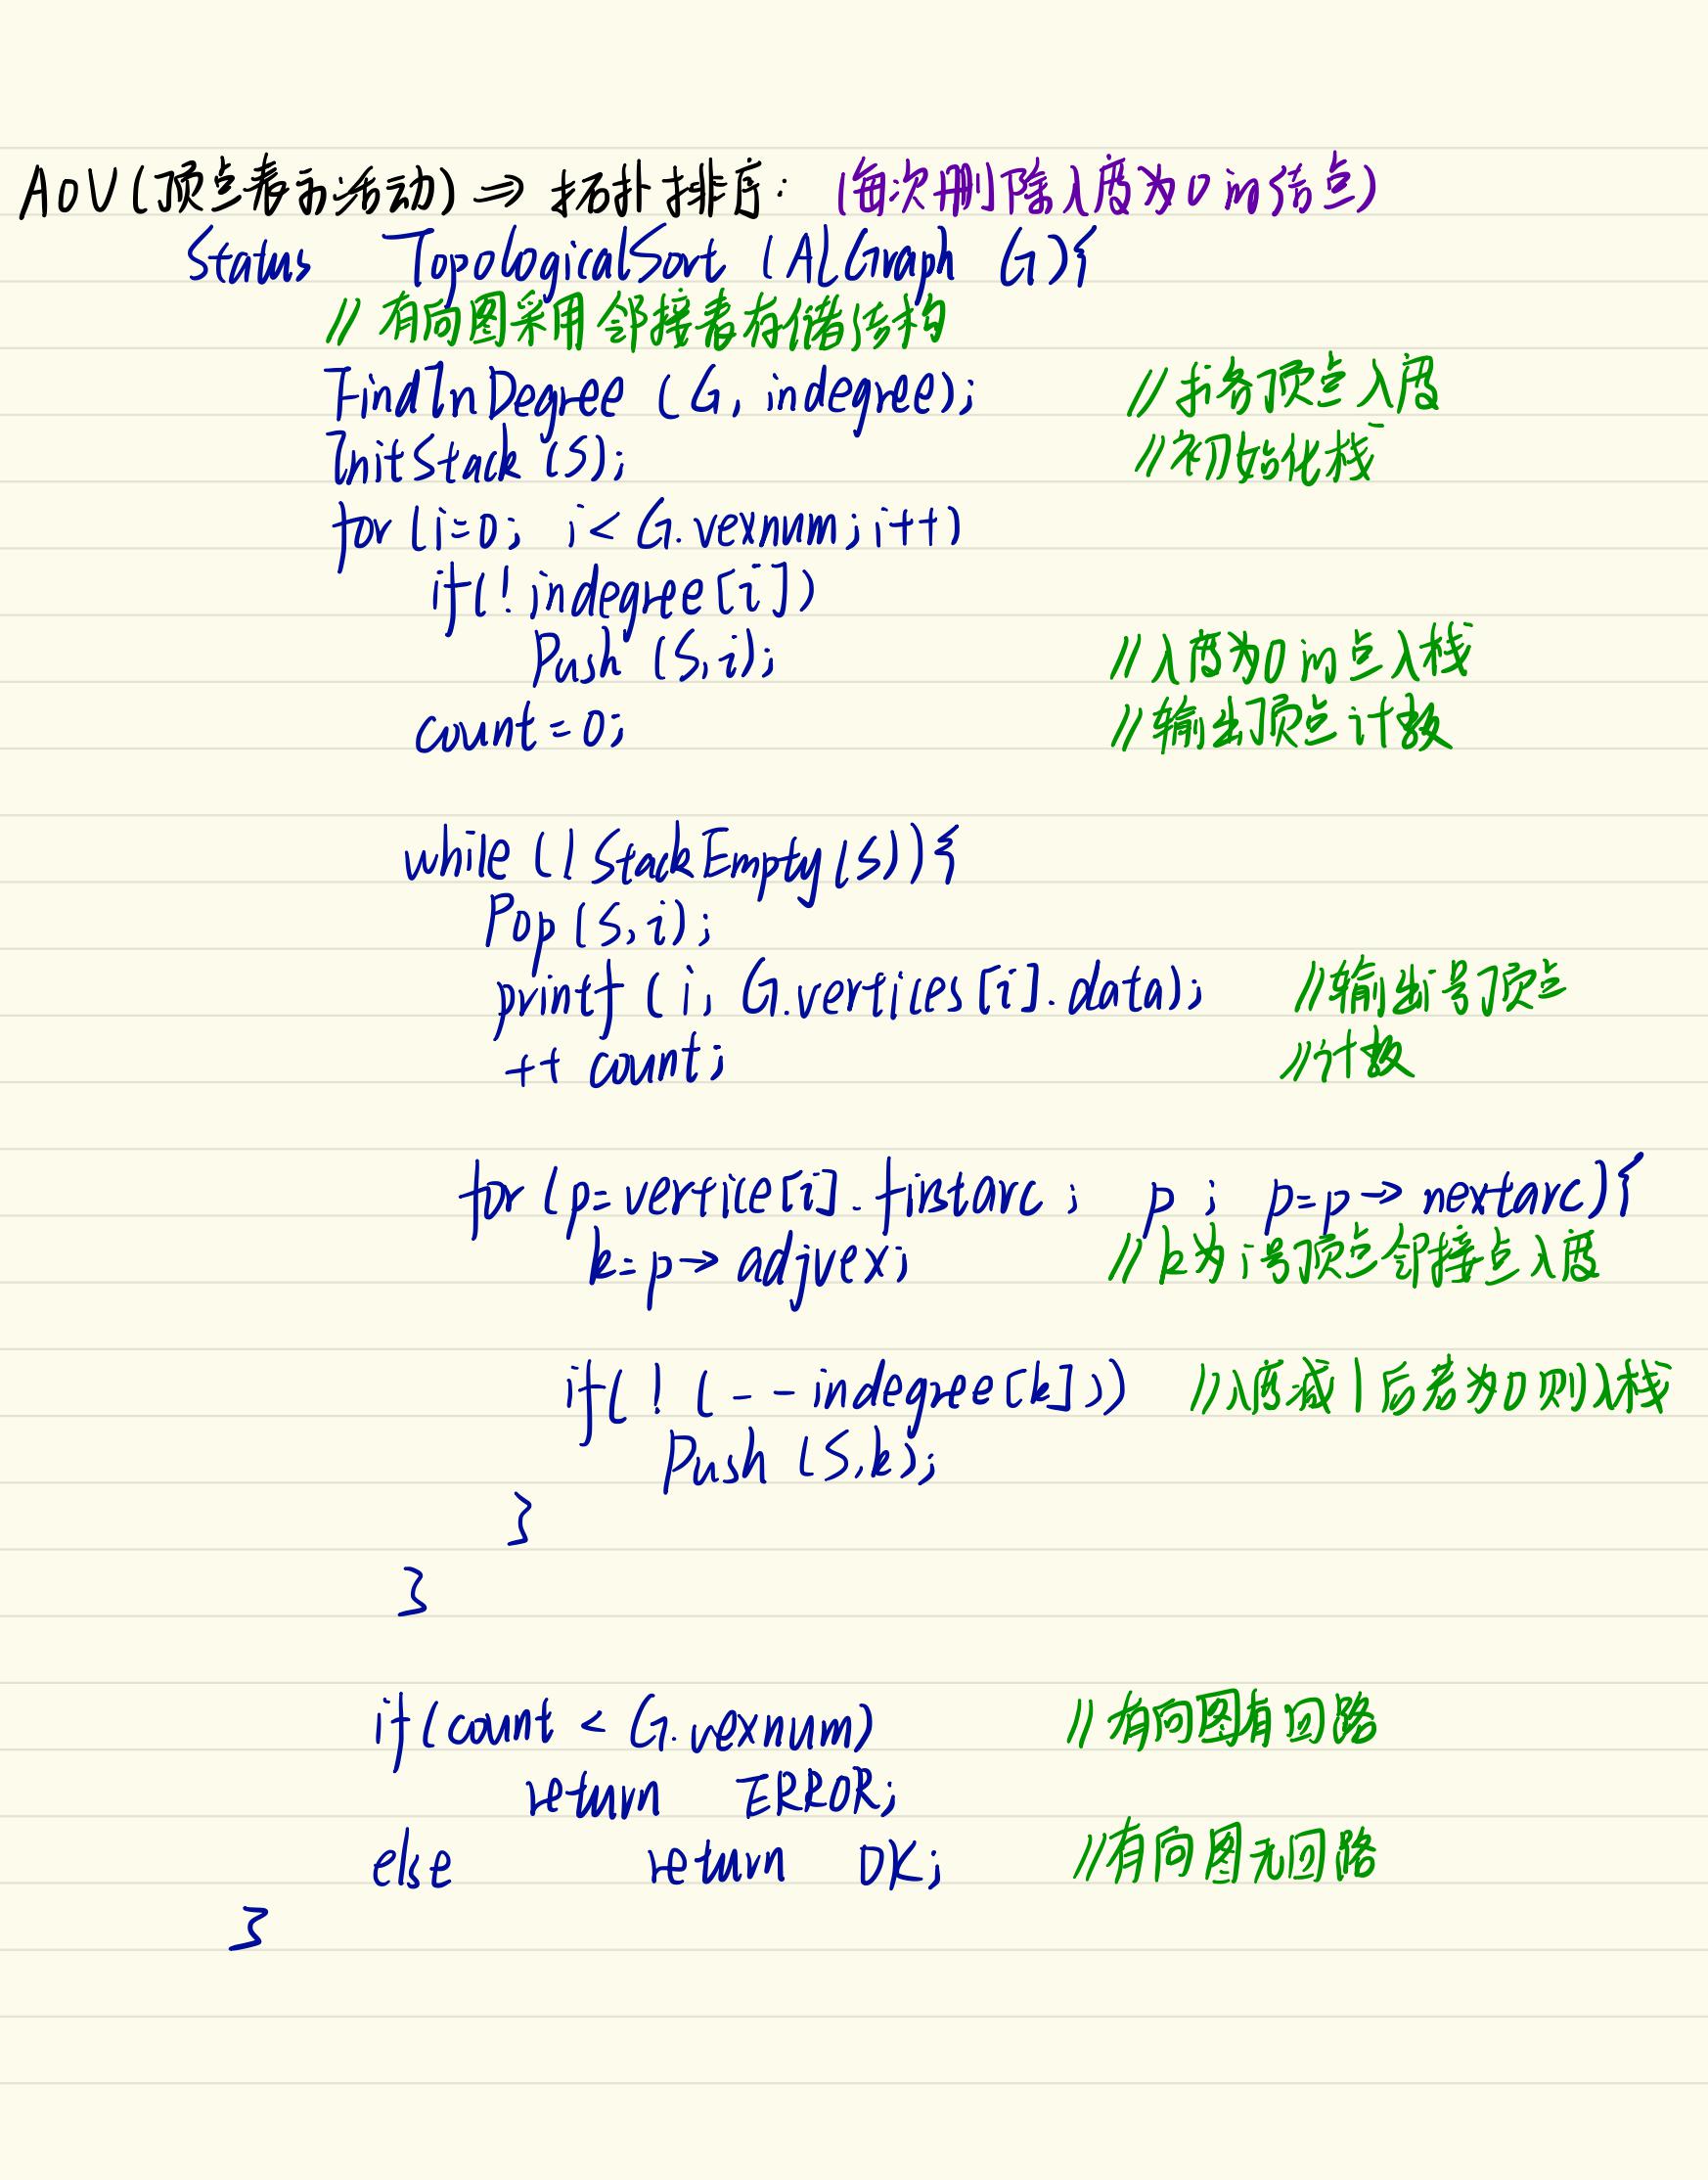 AOV(顶点表示活动) ⇒ 拓扑排序: (每次删除入度为0的结点)
Status TopologicalSort (ALGraph G){
// 有向图采用邻接表存储结构
FindInDegree (G, indegree); // 求各顶点入度
InitStack (S); //初始化栈
for (i=0; i< G.vexnum; i++)
if(! indegree[i])
Push (S,i); //入度为0的点入栈
count=0; //输出顶点计数
while (! StackEmpty(S)){
Pop (S,i);
printf (i, G.vertices[i].data); //输出i号顶点
++ count; //计数
for (p=vertice[i].firstarc; p; p=p→nextarc){
k=p→adjvex; // k为i号顶点邻接点入度
if( ! (--indegree[k])) //入度减1后若为0则入栈
Push (S,k);
}
}
if(count < G.vexnum) // 有向图有回路
return ERROR;
else return OK; //有向图无回路
}